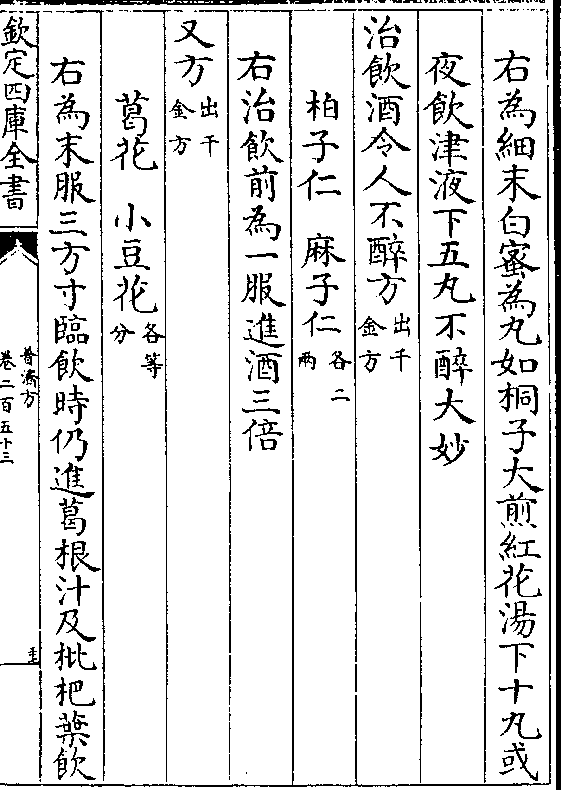 右為細末白蜜為丸如桐子大煎紅花湯下十丸或
夜飲津液下五丸不醉大妙
治飲酒令人不醉方出千金方
柏子仁 麻子仁各二兩
右治飲前為一服進酒三倍
又方出千金方
葛花 小豆花各等分
右為末服三方寸臨飲時仍進葛根汁及枇杷葉飲
欽定四庫全書
普濟方
卷二百五十三